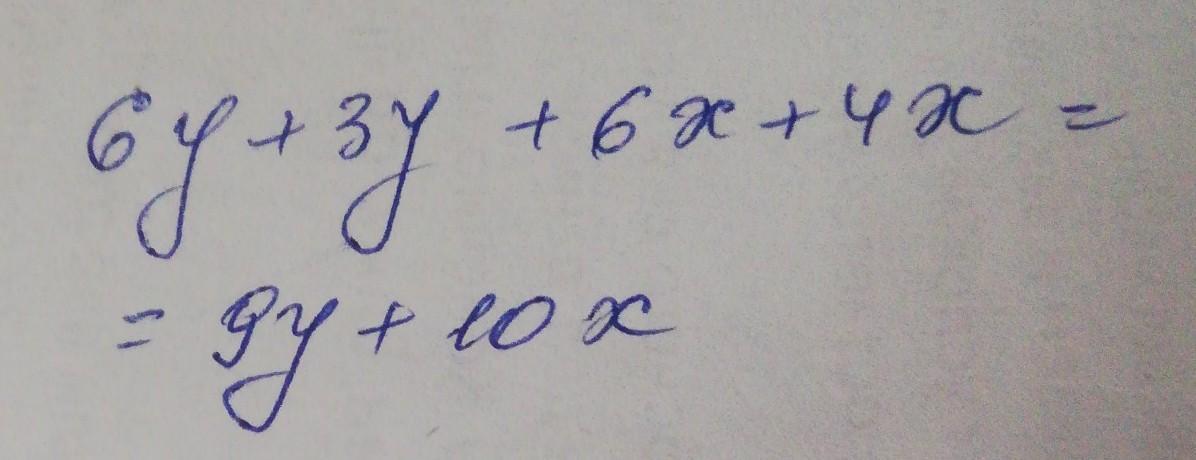 6y + 3y + 6x + 4x =
= 9y + 10x